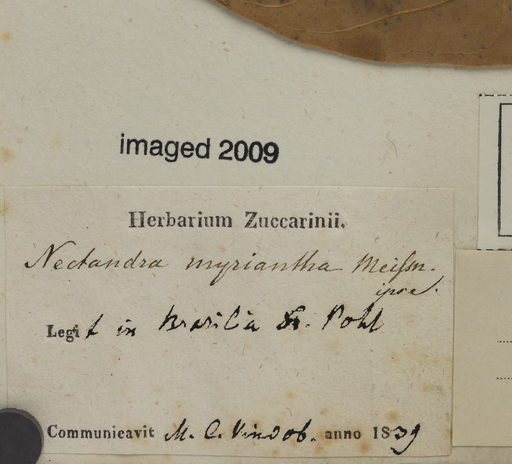 imaged 2009
Herbarium Zuccarinii.
Nectandra myriantha Meisſn.
ipse.
Legit in Brasilia Dr. Pohl
Communicavit M. C. Vindob. anno 1839